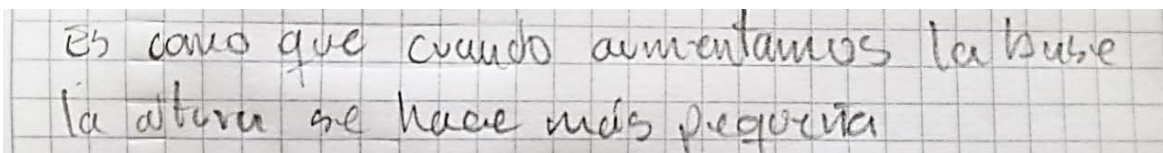 Es como que cuando aumentamos la base
la altura se hace más pequeña